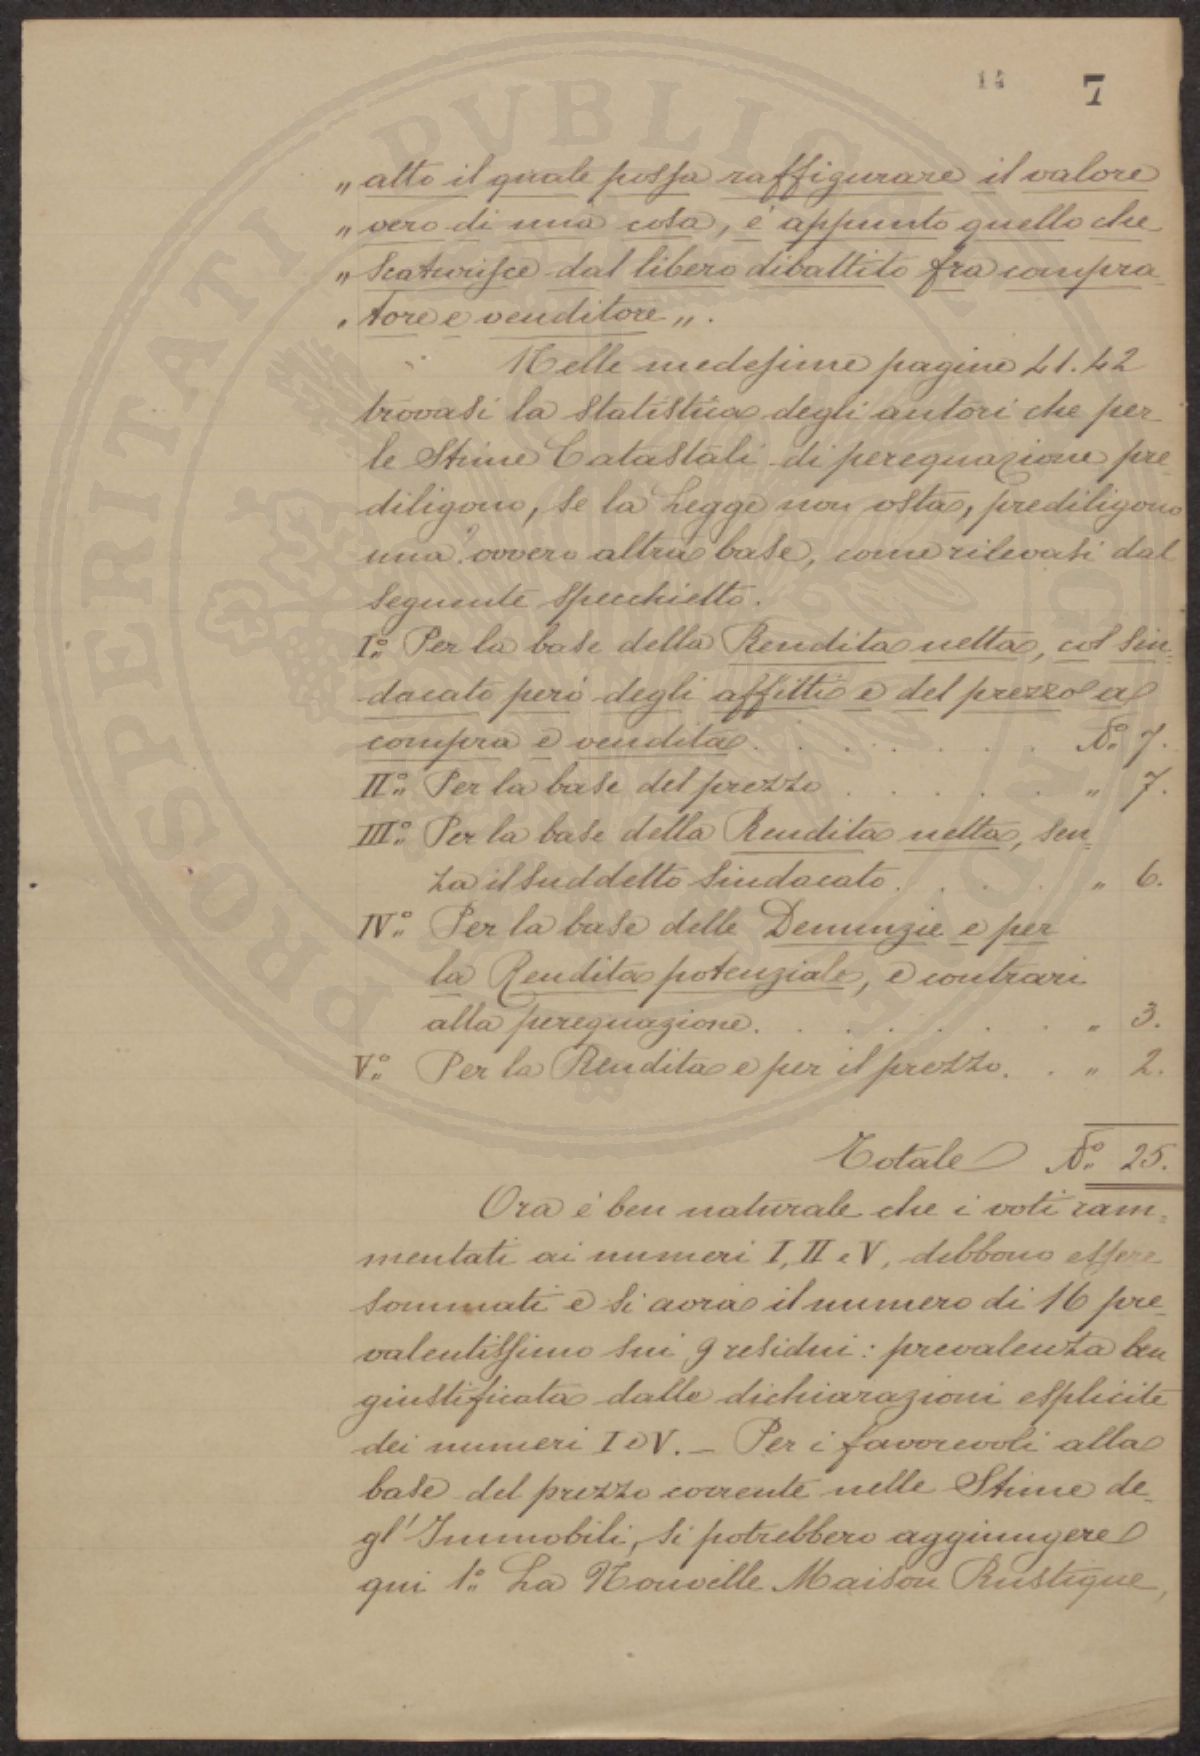 14 7
„ atto il quale possa raffigurare il valore
„ vero di una cosa, è appunto quello che
„ scaturisce dal libero dibattito fra compra-
„ tore e venditore „.
Nelle medesime pagine 41.42
trovasi la statistica degli autori che per
le Stime Catastali di perequazione pre-
diligono, se la Legge non osta, prediligono
una, ovvero altra base, come rilevasi dal
seguente specchietto.
I.º Per la base della Rendita netta, col sin-
dacato però degli affitti e del prezzo a
compra e vendita . . . . . . . . N.º 7.
II.º Per la base del prezzo . . . . . „ 7.
III.º Per la base della Rendita netta, sen-
za il suddetto sindacato . . . . „ 6.
IV.º Per la base delle Denunzie e per
la Rendita potenziale, e contrari
alla perequazione . . . . . . . „ 3.
V.º Per la Rendita e per il prezzo . . „ 2.
Totale N.º 25.
Ora è ben naturale che i voti ram-
mentati ai numeri I, II e V, debbono essere
sommati e si avrà il numero di 16 pre-
valentissimo sui 9 residui: prevalenza ben
giustificata dalle dichiarazioni esplicite
dei numeri I e V. – Per i favorevoli alla
base del prezzo corrente nelle Stime de-
gl'Immobili, si potrebbero aggiungere
qui 1.º La Nouvelle Maison Rustique,
PROSPERITATI PVBLICAE